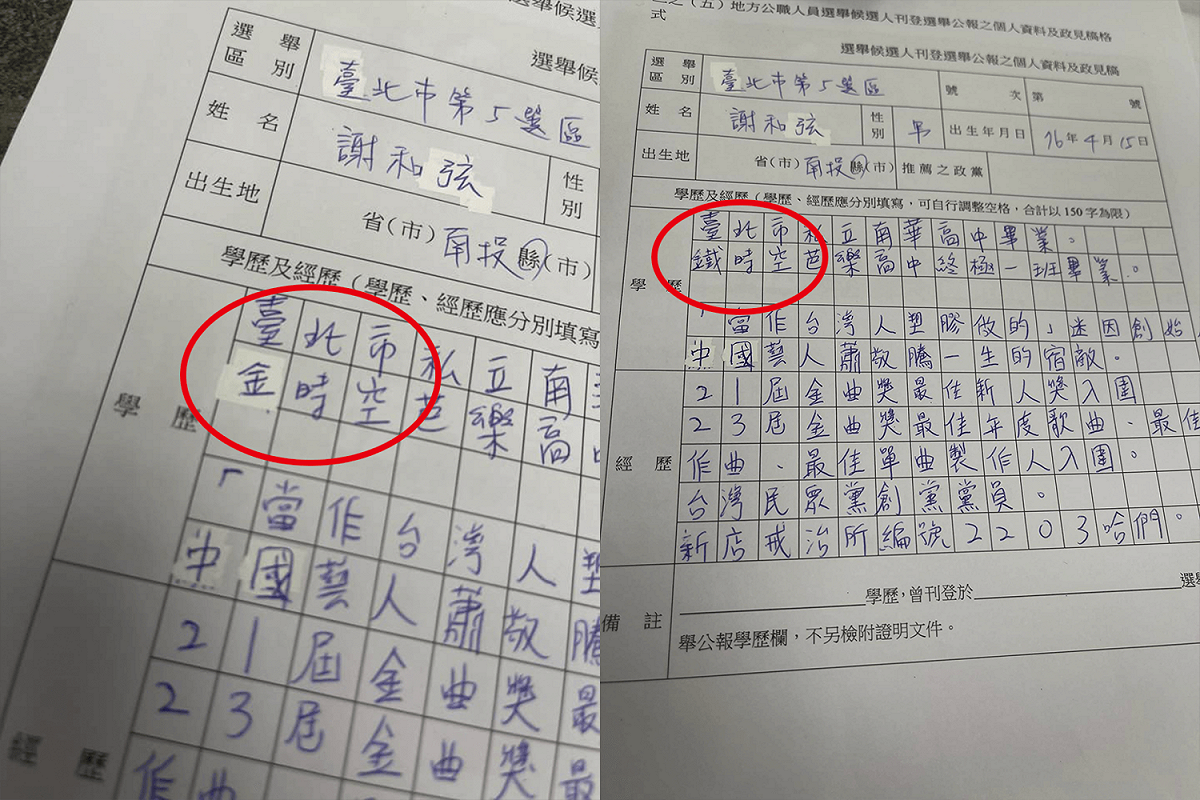 選舉候選
選舉候
選舉區別 臺北市第5選區
姓名 謝和弦 性別
出生地 省(市)南投縣(市)
學歷及經歷(學歷、經歷應分別填寫
學歷
臺北市私立南
金時空芭樂高
「當作台灣人塑
中國藝人蕭敬騰
經歷
21屆金曲獎最
23屆金曲獎最
作曲
之(五)地方公職人員選舉候選人刊登選舉公報之個人資料及政見稿格
式
選舉候選人刊登選舉公報之個人資料及政見稿
選舉區別 臺北市第5選區 號次 第 號
姓名 謝和弦 性別 男 出生年月日 76年4月15日
出生地 省(市)南投縣(市) 推薦之政黨
學歷及經歷(學歷、經歷應分別填寫,可自行調整空格,合計以150字為限)
學歷
臺北市私立南華高中畢業。
鐵時空芭樂高中終極一班畢業。
「當作台灣人塑膠做的」迷因創始
中國藝人蕭敬騰一生的宿敵。
經歷
21屆金曲獎最佳新人獎入圍
23屆金曲獎最佳年度歌曲、最佳
作曲、最佳單曲製作人入圍。
台灣民眾黨創黨黨員。
新店戒治所編號2203哈們。
備註
學歷,曾刊登於 選
舉公報學歷欄,不另檢附證明文件。